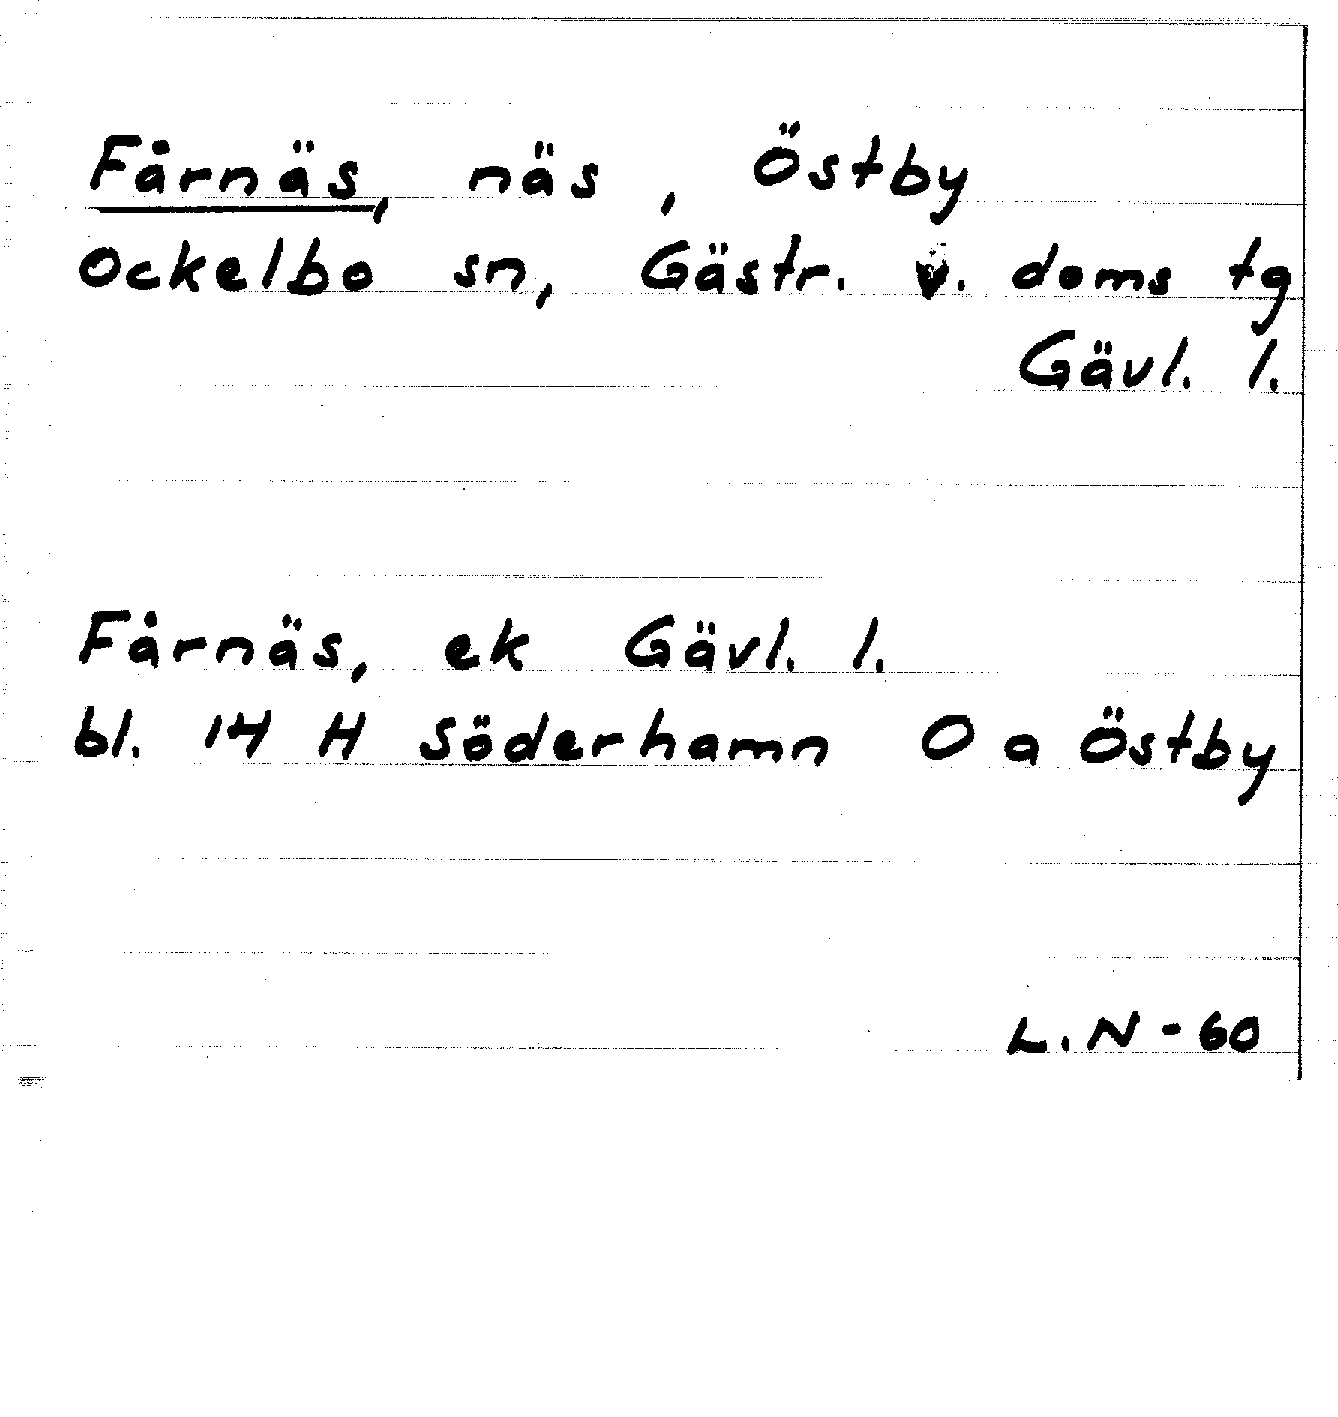 Fårnäs, näs, Östby
Ockelbo sn, Gästr. v. doms tg
Gävl. l.
Fårnäs, ek Gävl. l.
bl. 14 H Söderhamn O a Östby
L.N - 60